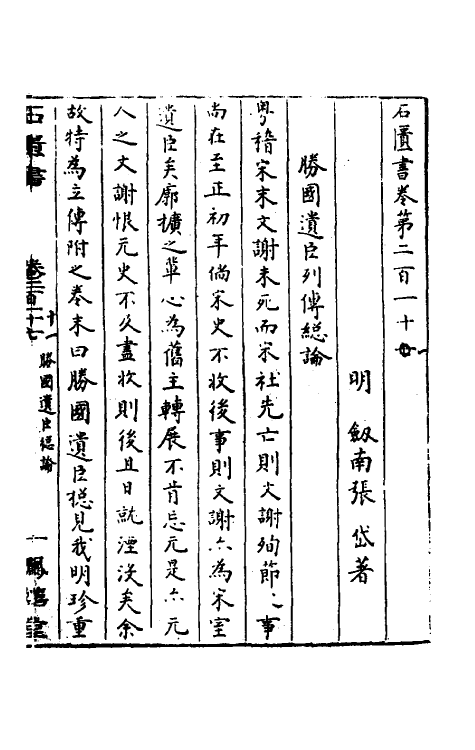 石匱書卷第二百一十一
明　劔南張岱著
勝國遺臣列傳總論
粤稽宋末文謝未死而宋社先亡則文謝殉節〻事
尚在至正初年倘宋史不收後事則文謝亦為宋室
遺臣矣廓擴之軰心為舊主轉展不肯忘元是亦元
人之文謝恨元史不久盡收則後且日就湮沒矣余
故特為立傳附之卷末曰勝國遺臣總見我明珍重
石匱書
勝國遺臣總論
一
鳳嬉堂